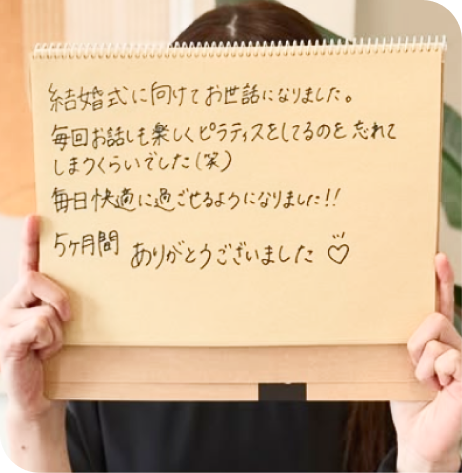 結婚式に向けてお世話になりました。
毎回お話しも楽しくピラティスをしてるのを忘れて
しまうくらいでした(笑)
毎日快適に過ごせるようになりました!!
5ヶ月間 ありがとうございました♡